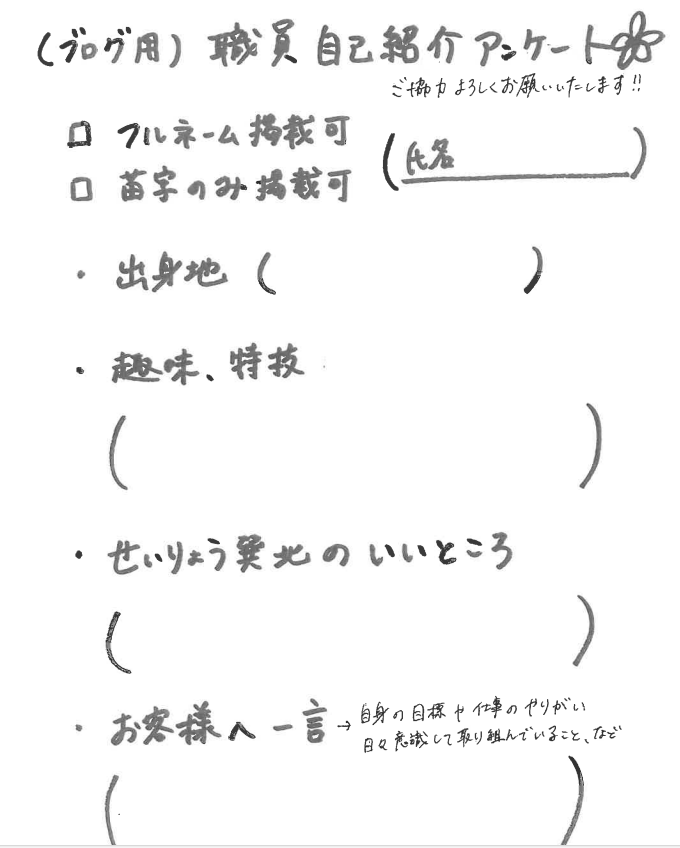 (ブログ用) 職員 自己紹介 アンケート
ご協力 よろしくお願いいたします!!
□ フルネーム掲載可
(氏名 )
□ 苗字のみ掲載可
・ 出身地 ( )
・ 趣味、特技
( )
・ せいりょう巽北の いいところ
( )
・ お客様へ一言 → 自身の目標や仕事のやりがい
日々意識して取り組んでいること、など
(  )